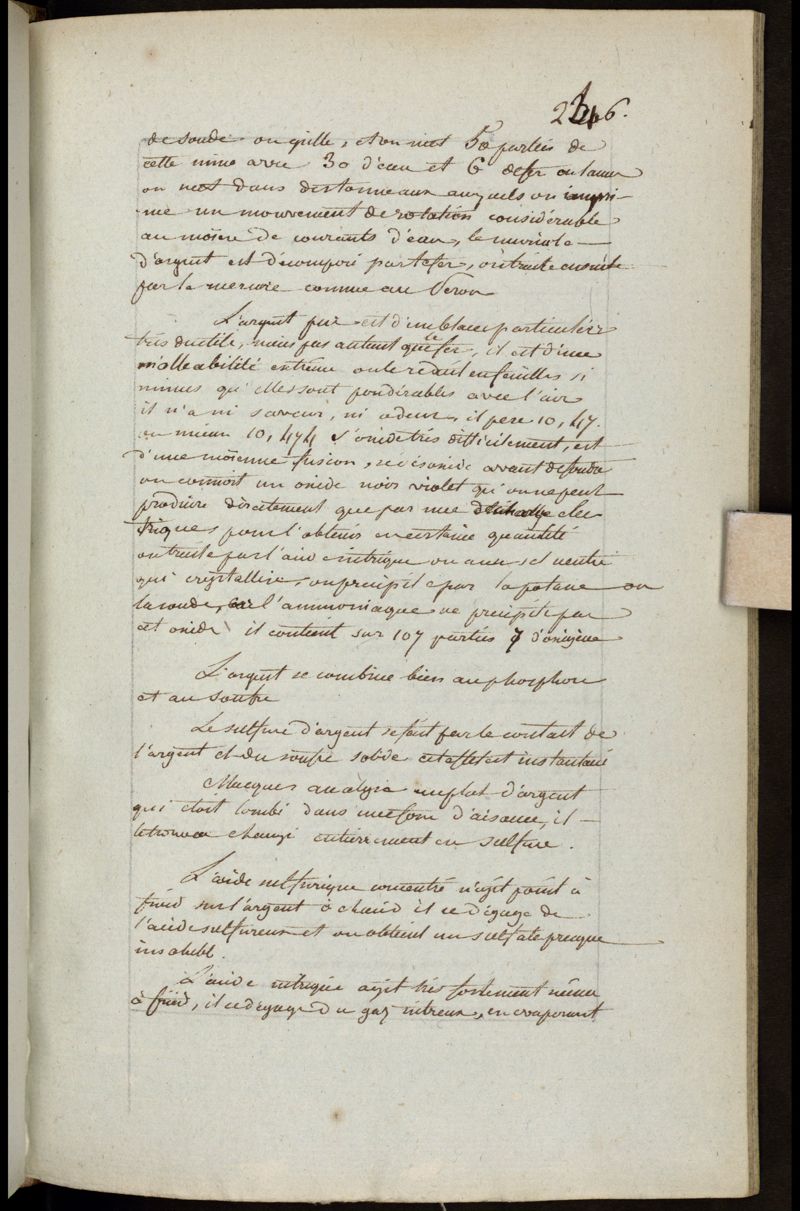 246.
de soude on grille, et on met 50 parties de
cette mine avec 30 d'eau et 6 de fer en lames
on met dans des tonneaux auxquels on impri-
me un mouvement de rotation considérable
au moïen de courrents d'eau, le muriate
d'argent est décomposé par le fer, on traite ensuite
par le mercure comme au Perou
L'argent pur est d'un blanc particulier
très ductile, mais pas autant que le fer, il est d'une
malleabilité extrême on le réduit en feuilles si
minces qu'elles sont pondérables avec l'air
il n'a ni saveur, ni odeur, il pese 10,47.
ou mieux 10,474 s'oxide très difficilement, est
d'une moïenne fusion, se désoxide avant de fondre
on connoit un oxide noir violet qu'on ne peut
produire directement que par une décharge élec
triques pour l'obtenir en certaine quantité
on traite par l'acide nitrique on a un sel neutre
qui crystallise, on précipite par la potasse ou
la soude, car l'ammoniaque ne précipite pas
cet oxide il contient sur 107 parties 7 d'oxigène
L'argent se combine bien au phosphore
et au soufre
Le sulfure d'argent se fait par le contact de
l'argent et du soufre solide cet effet est instantané
Macquer analysa un plat d'argent
qui étoit tombé dans une fosse d'aisance, il
le trouva changé entierrement en sulfure.
L'acide sulfurique concentré n'agit point à
froid sur l'argent à chaud il se dégage de
l'acide sulfureux et on obtient un sulfate presque
insoluble.
L'acide nitrique agit très fortement même
à froid, il se dégage du gaz nitreux, en evaporant